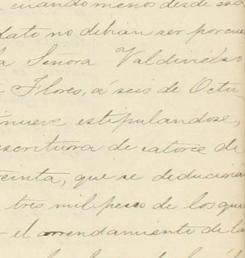 cuando menos desde ese
dato no debian ser por cue
la Señora Valdivielso
Flores, á seis de Octu
nueve estipulandose,
escritura de catorce de
reinta, que se deducian
tres mil pesos de los que
el arrendamiento de la